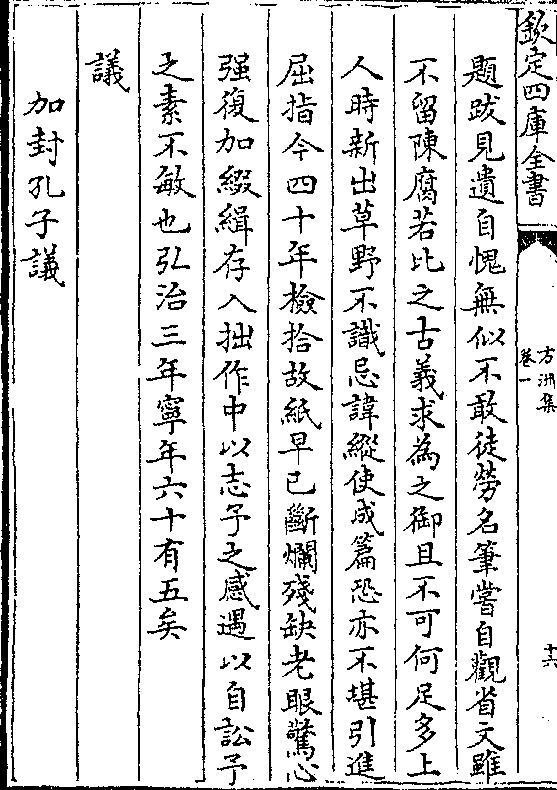 欽定四庫全書
方洲集
卷一
十六
題跋見遺自愧無似不敢徒勞名筆嘗自觀省文雖
不留陳腐若比之古義求為之御且不可何足多上
人時新出草野不識忌諱縱使成篇恐亦不堪引進
屈指今四十年檢拾故紙早已斷爛殘缺老眼驚心
强復加綴緝存入拙作中以志予之感遇以自訟予
之素不敏也弘治三年寧年六十有五矣
議
加封孔子議